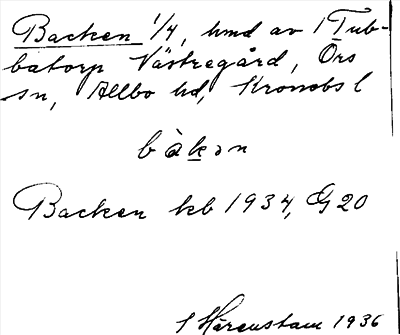 Backen 1/4, hmd av 1 Tub-
batorp Västregård, Örs
sn, Allbo hd, Kronobs l
bàkən
Backen kb 1934, G 20
Härenstam 1936